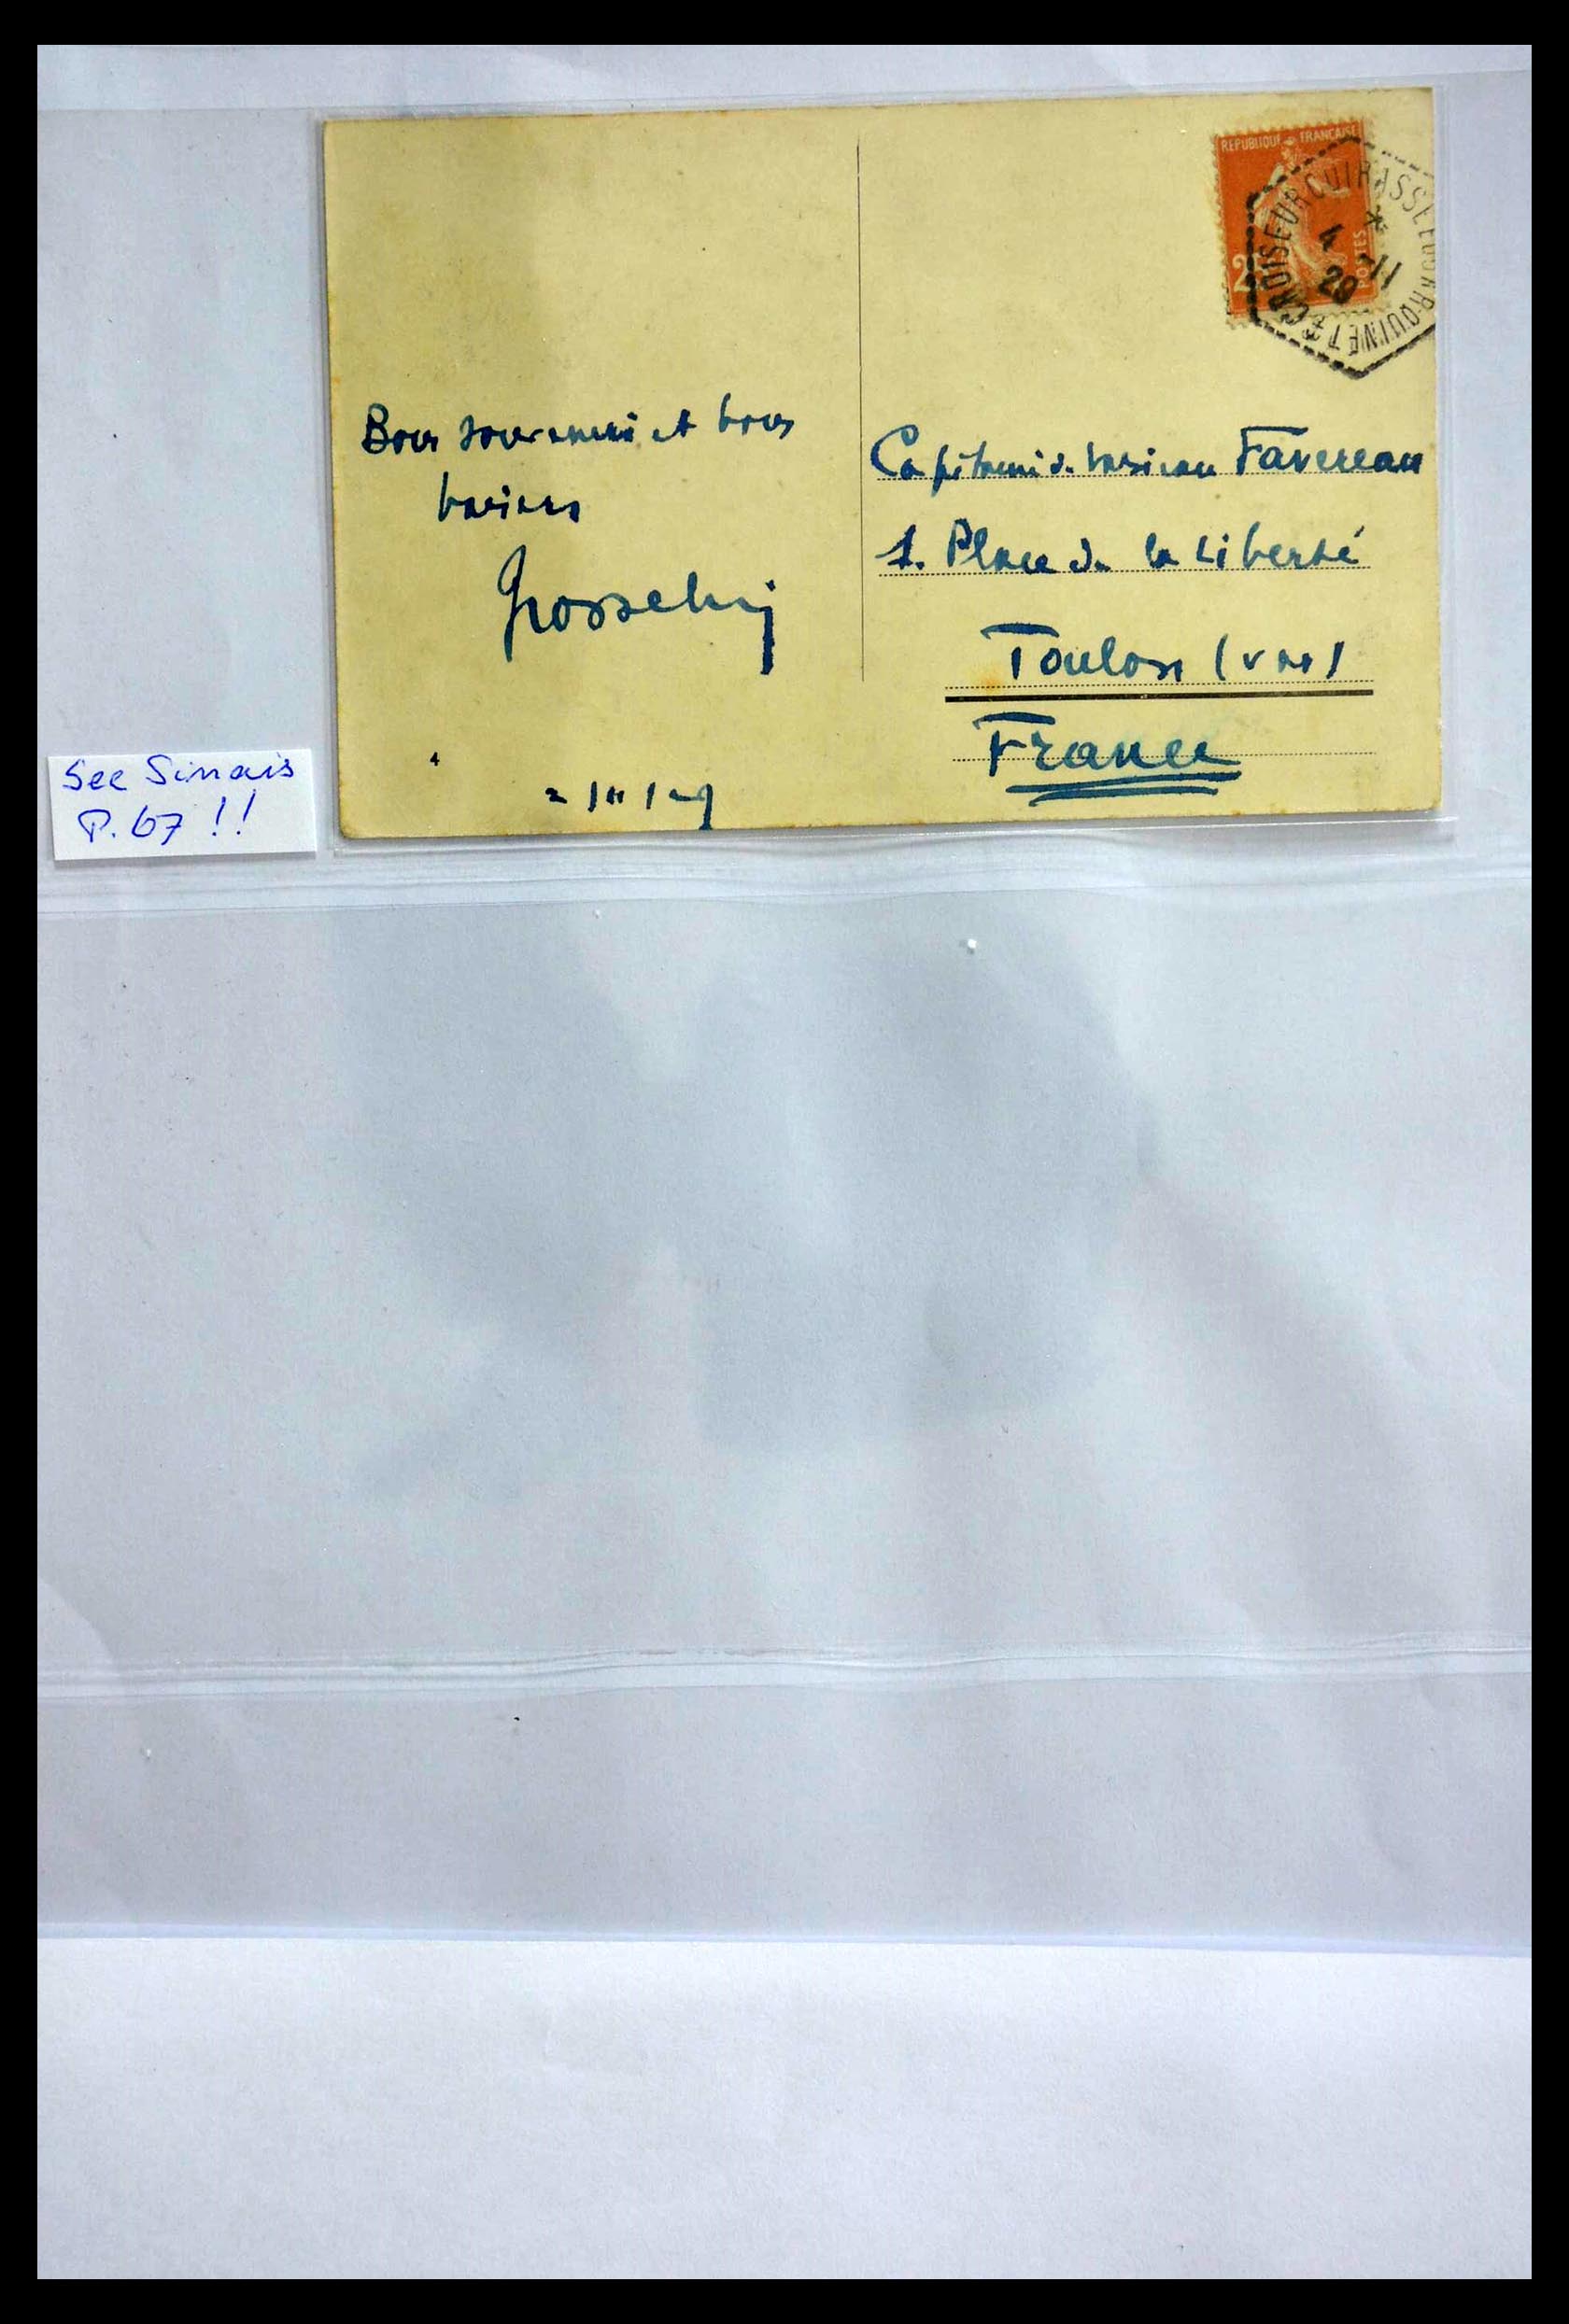 REPUBLIQUE FRANÇAISE
POSTES
2
CROISEUR CUIRASSE EDGAR QUINET
4 -11
29
Bons souvenirs et bons
baisers
Capitaine de vaisseau Favereau
1. Place de la Liberté
Toulon (Var)
France
2/11/29
See Sinais
P. 67 !!